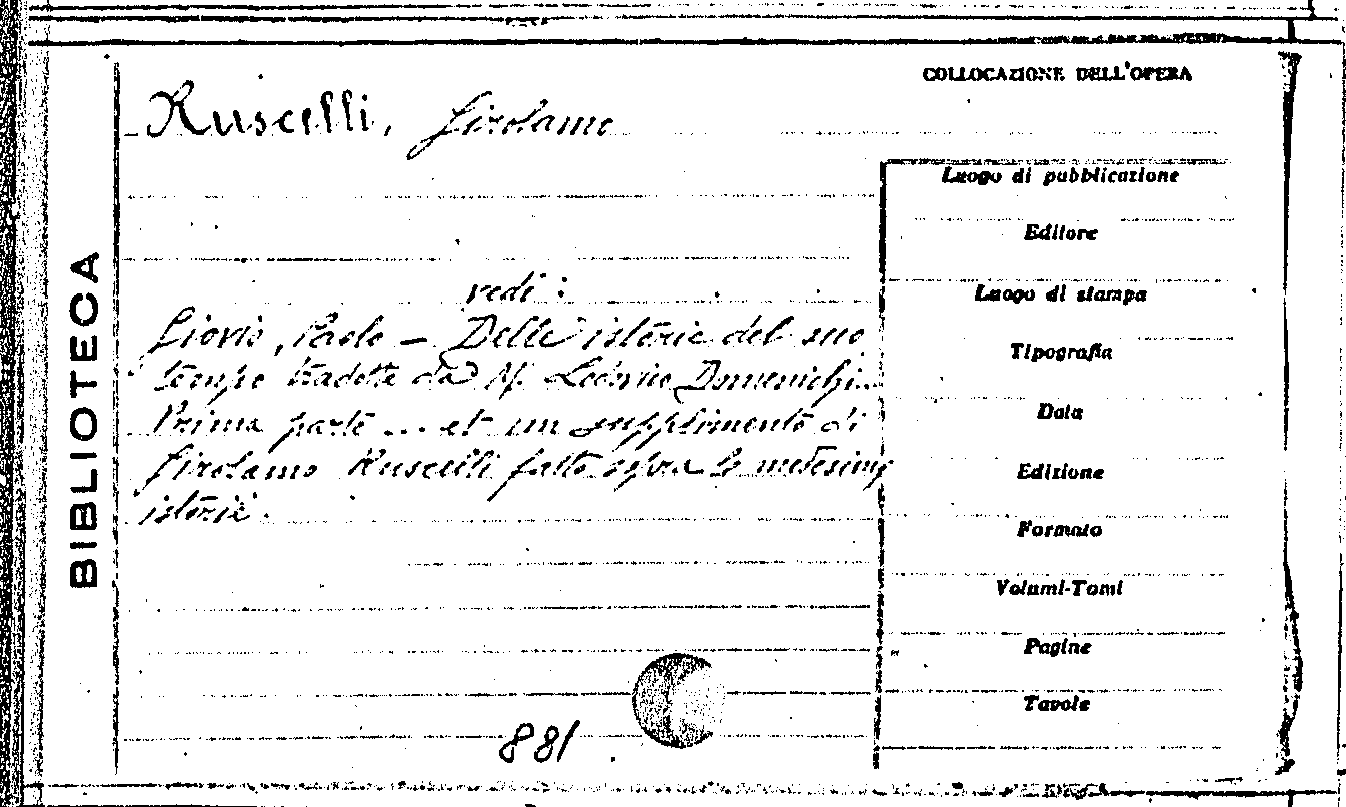 COLLOCAZIONE DELL'OPERA
Ruscelli, Girolamo
vedi:
Giovio, Paolo - Delle istorie del suo
tempo tradotte da M. Lodovico Domenichi..
Prima parte ... et un supplimento di
Girolamo Ruscelli fatto sopra le medesime
istorie.
881
BIBLIOTECA
Luogo di pubblicazione
Editore
Luogo di stampa
Tipografia
Data
Edizione
Formato
Volumi-Tomi
Pagine
Tavole